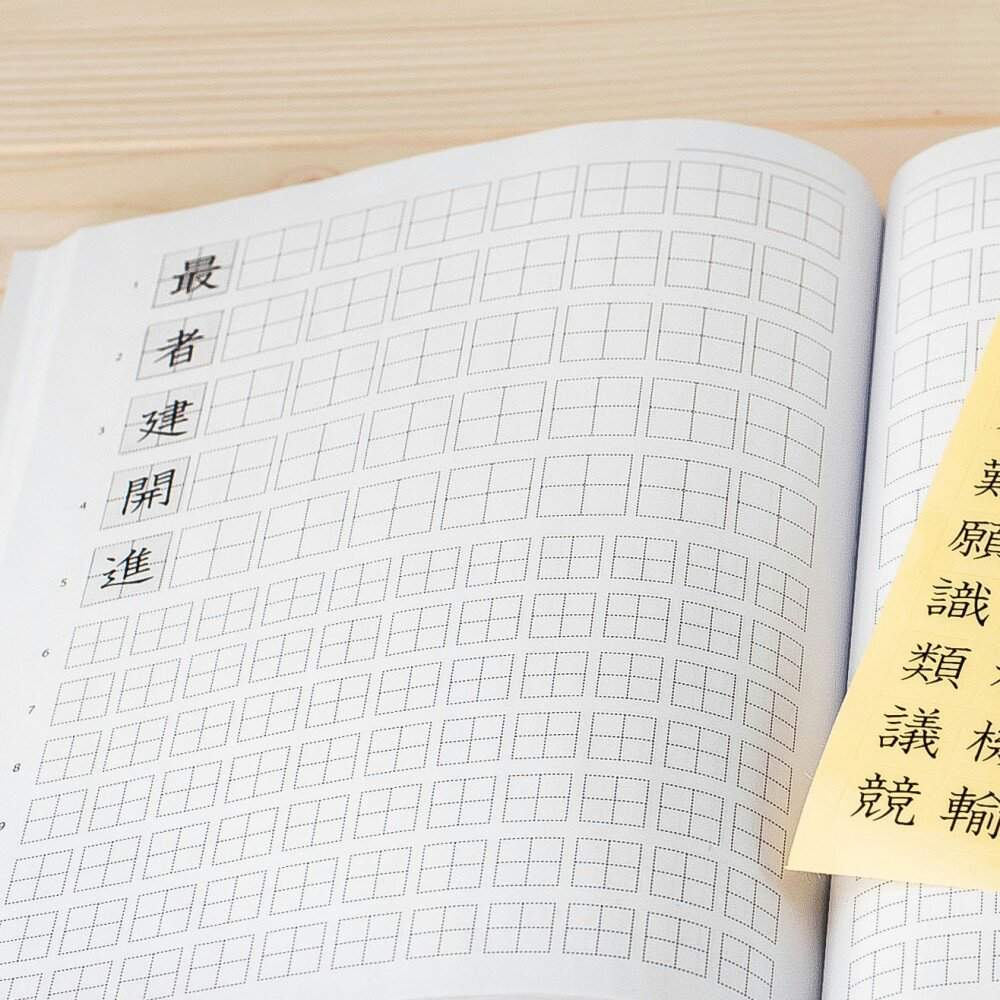 1 最
2 者
3 建
4 開
5 進
6
7
8
9
願
識
類
議
競 輸